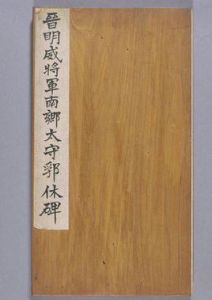 晉明威將軍南鄉太守郛休碑